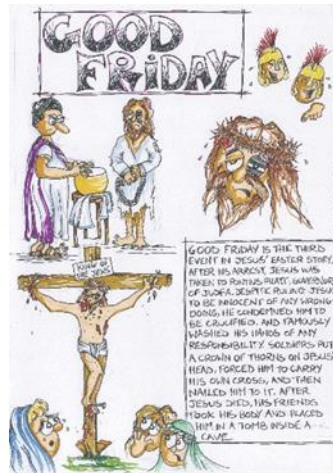 GOOD
FRIDAY
KING OF
THE JEWS
GOOD FRIDAY IS THE THIRD
EVENT IN JESUS' EASTER STORY.
AFTER HIS ARREST, JESUS WAS
TAKEN TO PONTIUS PILATE, GOVERNOR
OF JUDEA. DESPITE RULING JESUS
TO BE INNOCENT OF ANY WRONG
DOING, HE CONDEMNED HIM TO
BE CRUCIFIED, AND FAMOUSLY
WASHED HIS HANDS OF ANY
RESPONSIBILITY. SOLDIERS PUT
A CROWN OF THORNS ON JESUS'
HEAD, FORCED HIM TO CARRY
HIS OWN CROSS, AND THEN
NAILED HIM TO IT. AFTER
JESUS DIED, HIS FRIENDS
TOOK HIS BODY AND PLACED
HIM IN A TOMB INSIDE A
CAVE